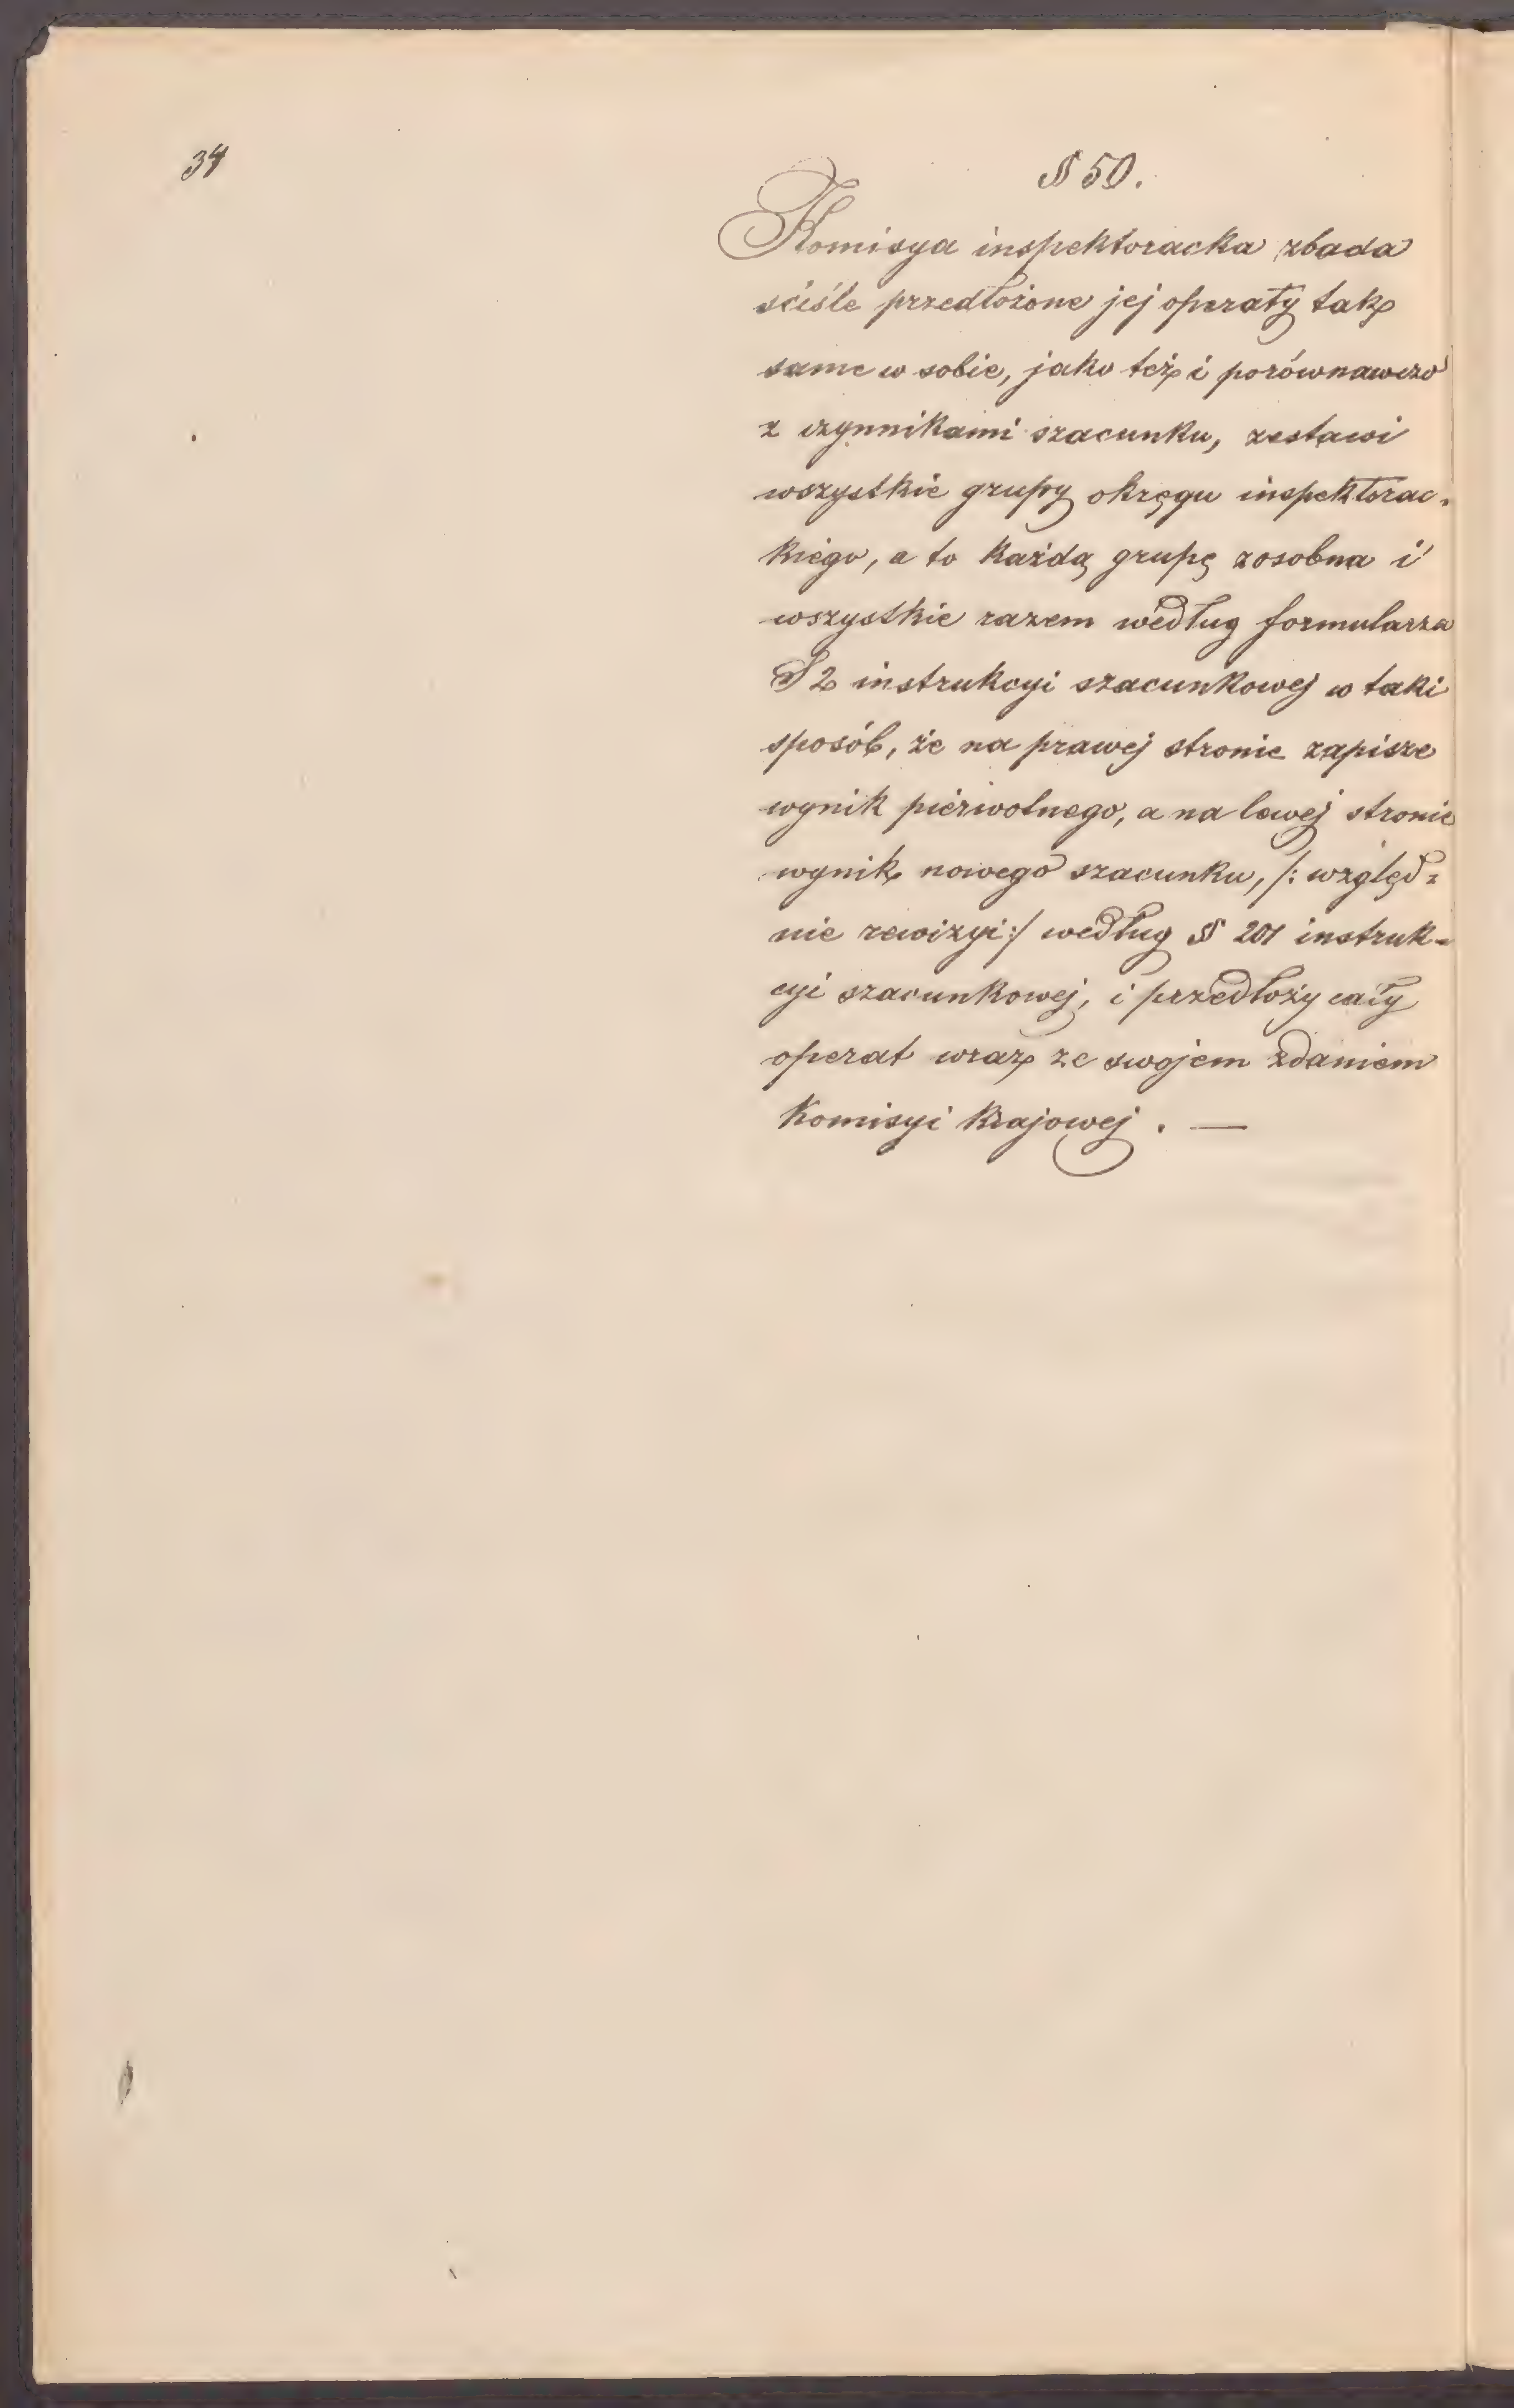 34
§ 50.
Komisya inspektoracka zbada
ściśle przedłożone jej operaty tak
same w sobie, jako też i porównawczo
z czynnikami szacunku, zestawi
wszystkie grupy okręgu inspektorac-
kiego, a to każdą grupę zosobna i
wszystkie razem według formularza
S 2 instrukcyi szacunkowej w taki
sposób, że na prawej stronie zapisze
wynik pierwotnego, a na lewej stronie
wynik nowego szacunku, /: względ=
nie rewizyi :/ według § 201 instruk-
cyi szacunkowej, i przedłoży cały
operat wraz ze swojem zdaniem
Komisyi Krajowej. —